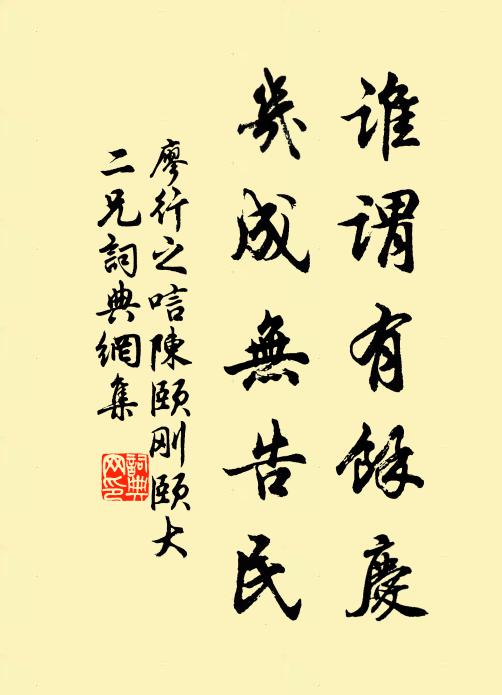 誰謂有餘慶
幾成無告民
廖行之唁陳頤剛頤大
二兄詞典網集
詞典網印